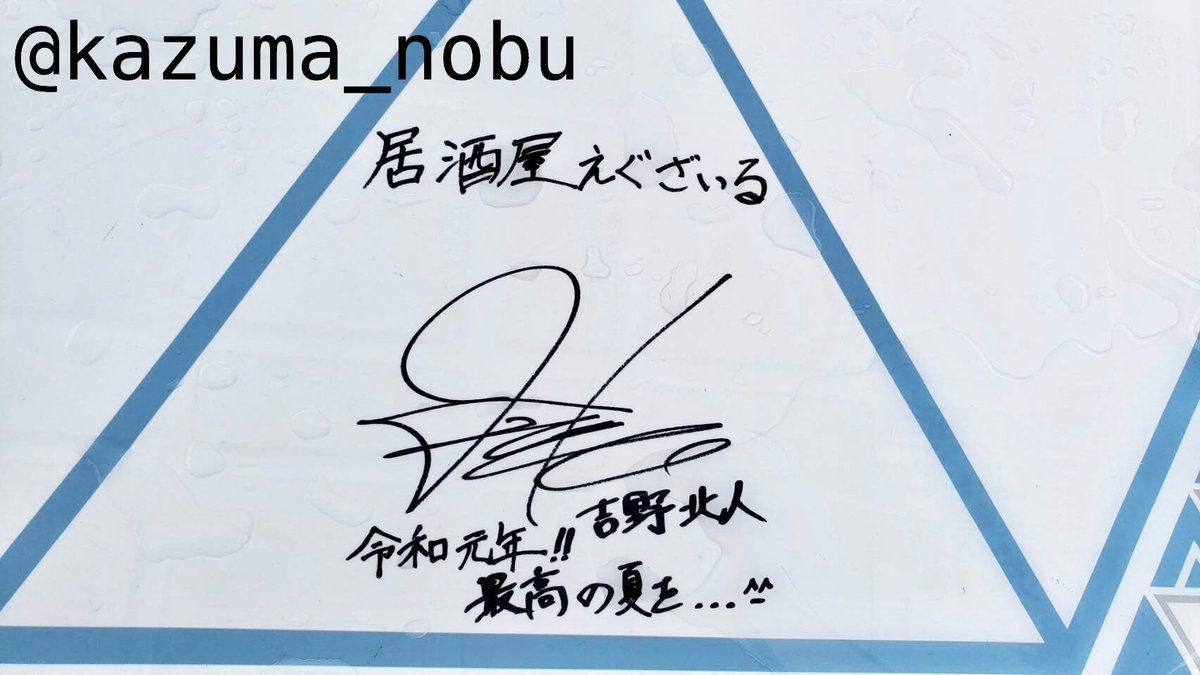 @kazuma_nobu
居酒屋えぐざいる
吉野北人
令和元年!!
最高の夏を...^^